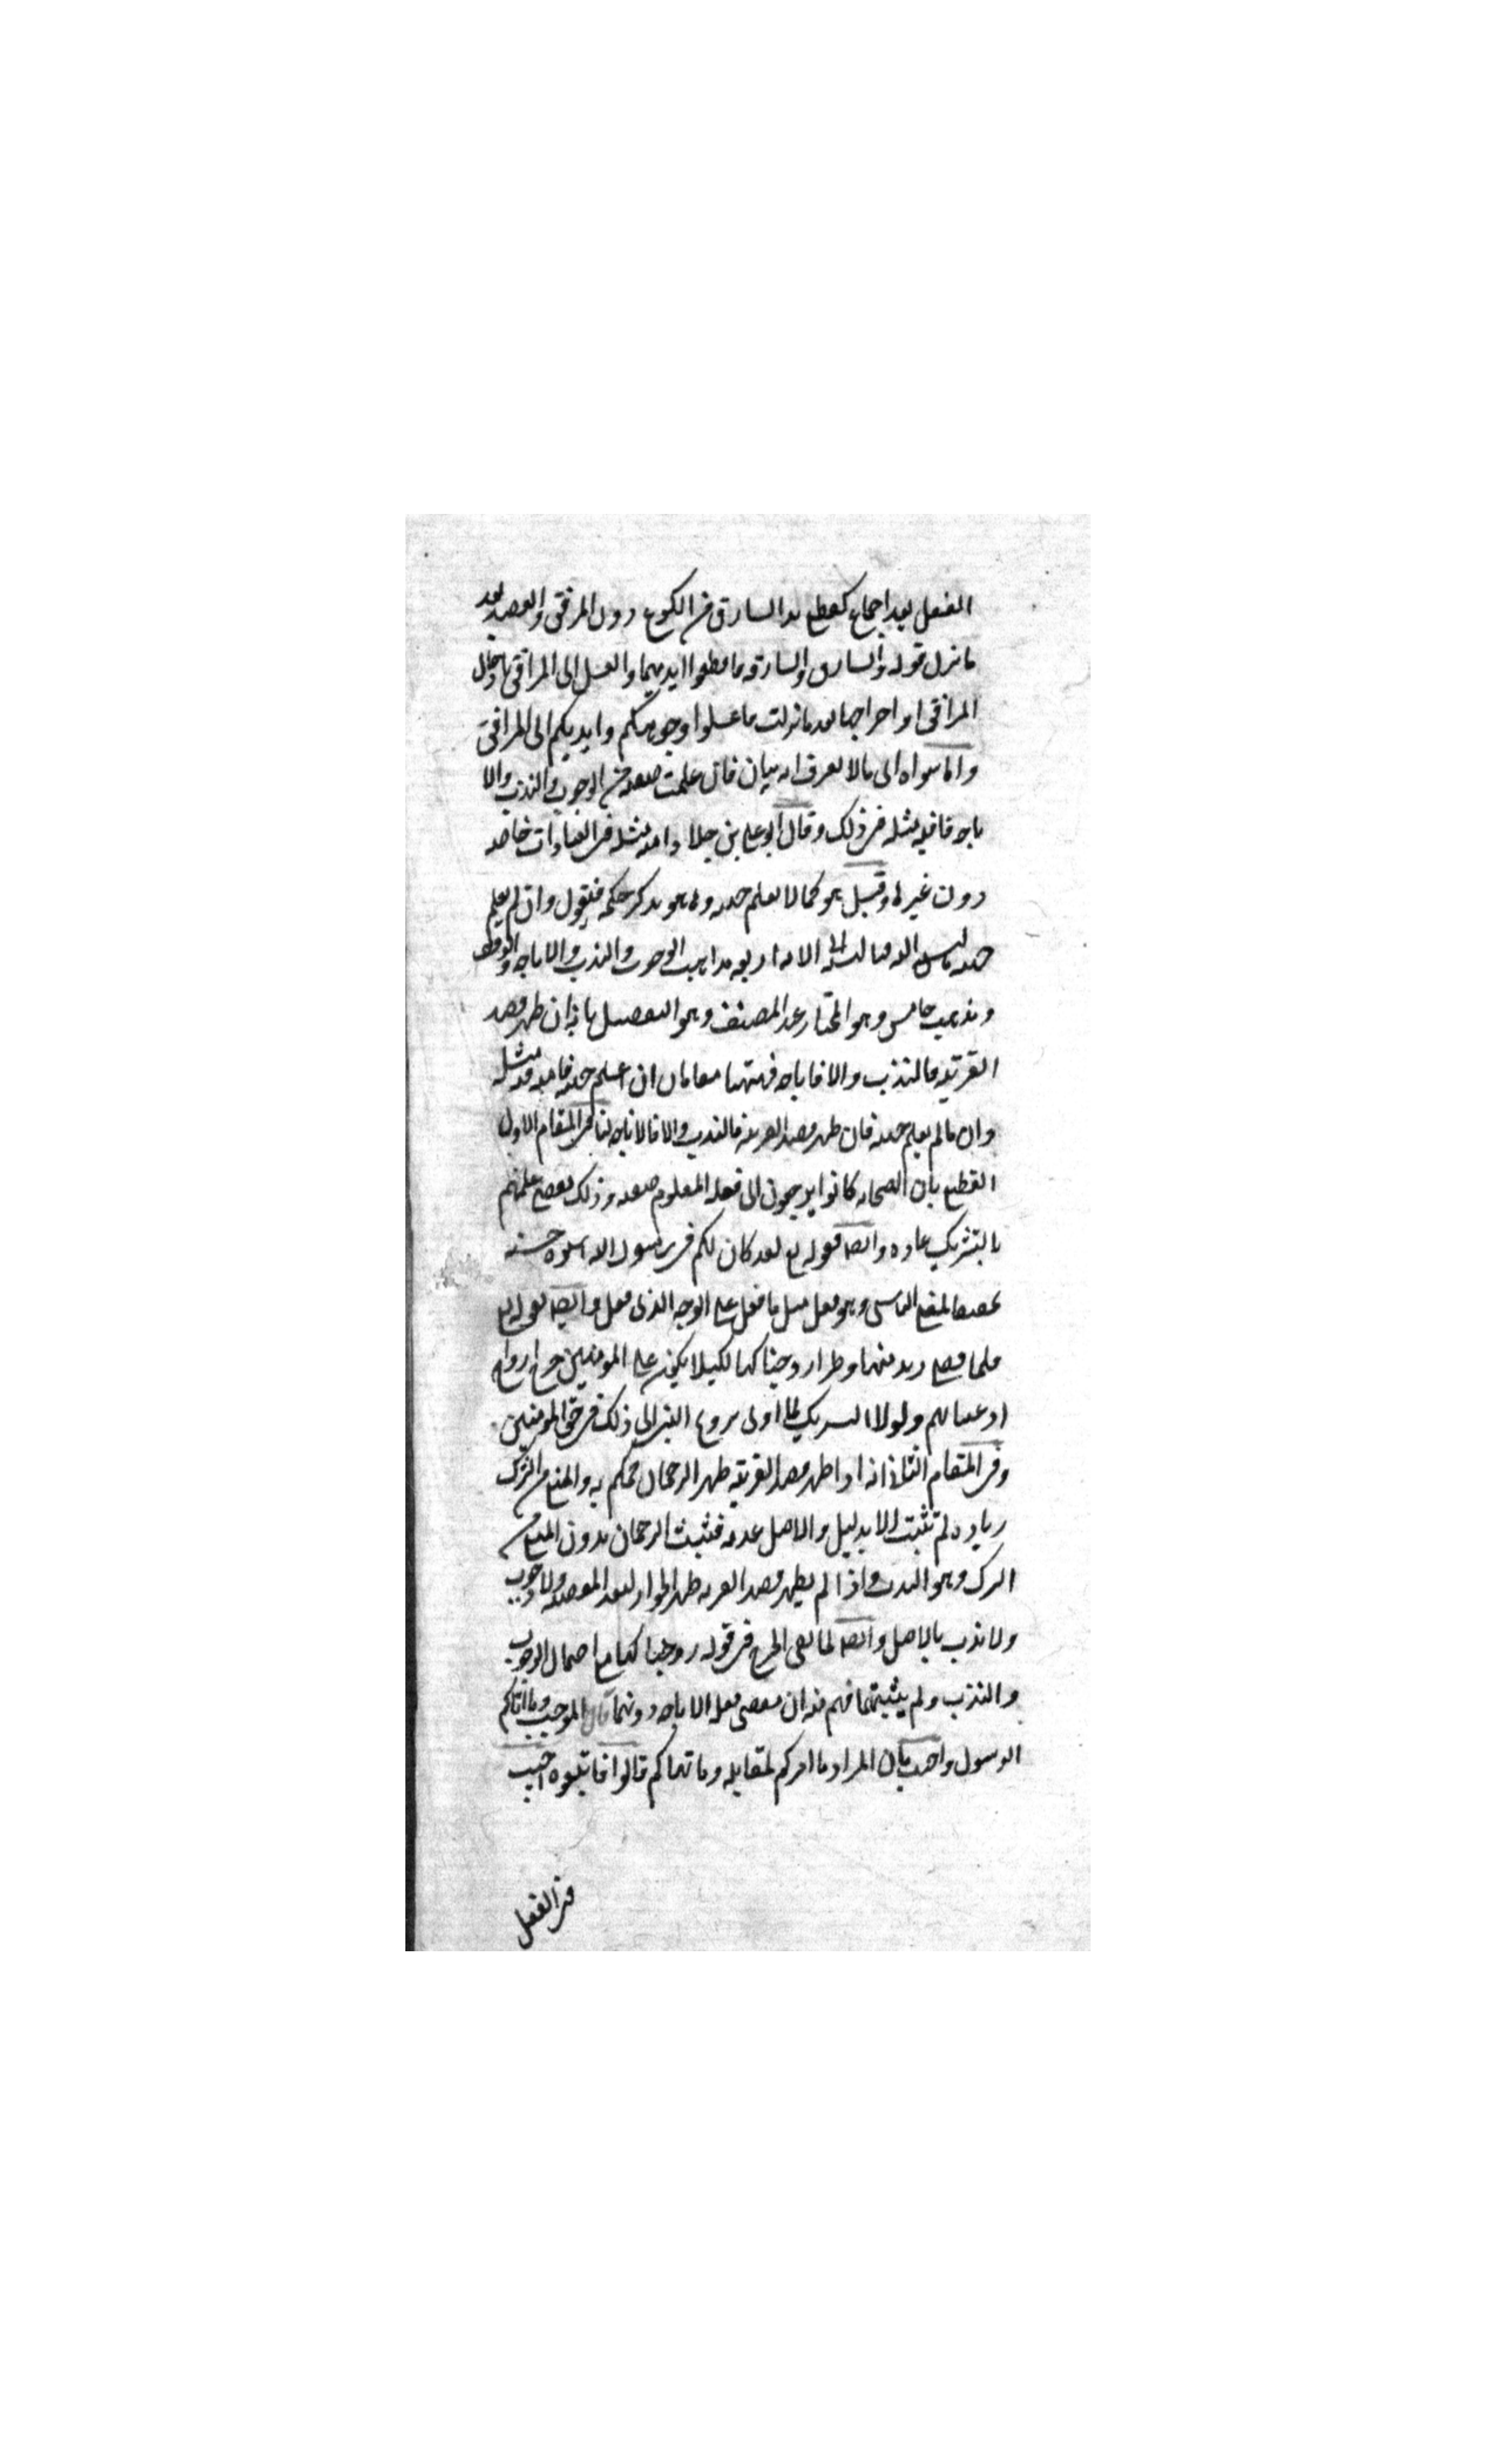 الفعل بعد اجماع كقطع يد السارق من الكوع دون المرفق والعضد بعد
ما نزل قوله والسارق والسارقة فاقطعوا ايديهما والغسل الى المرافق بادخال
المرافق او اخراجها بعد ما نزلت فاغسلوا وجوهكم وايديكم الى المرافق
واما سواه اى ما لا يعرف انه بيان فان علمت صفته من الوجوب والندب والا
باحة فامته مثله فى ذلك وقال ابو على بن خلاد امته مثله فى العبادات خاصة
دون غيرها وقيل هو كما لا يعلم جهته وها هو يذكر حكمه فيقول وان لم يعلم
جهته بالنسبة اليه وبالنسبة الى الامة اربعة مذاهب الوجوب والندب والاباحة والوقف
ومذهب خامس وهو المختار عند المصنف وهو التفصيل بانه ان ظهر قصد
القربة فالندب والا فاباحة فههنا مقامان ان علم جهته فامته مثله
وان ما لم يعلم جهته فان ظهر قصد القربة فالندب والا فالاباحة لنا فى المقام الاول
القطع بان الصحابة كانوا يرجعون الى فعله المعلوم صفته وذلك يقتضى علمهم
بالتشريك عادة وايضا قوله تع لقد كان لكم فى رسول الله اسوة حسنة
والتأسى وهو فعل مثل ما فعل على الوجه الذى فعل وايضا قوله تع
فلما قضى زيد منها وطرا زوجناكها لكيلا يكون على المؤمنين حرج فى ازواج
ادعيائهم ولولا التشريك لما ادى تزويج النبى الى ذلك فى حق المؤمنين
وفى المقام الثانى انه اذا ظهر قصد القربة ظهر الرجحان فحكم به والمنع من الترك
زيادة لم تثبت الا بدليل والاصل عدمه فثبت الرجحان بدون المنع من
الترك وهو الندب واذا لم يظهر قصد القربة ظهر الجواز لبعد المعصية ولا وجوب
ولا ندب بالاصل وايضا لما نفى الحرج فى قوله زوجناكها مع احتمال الوجوب
والندب ولم يثبتهما فهم منه ان مقتضى فعله الاباحة دونهما قال الموجب وما اتاكم
الرسول واجيب بان المراد ما امركم لمقابلة وما نهاكم قالوا فاتبعوه اجيب
فى الفعل